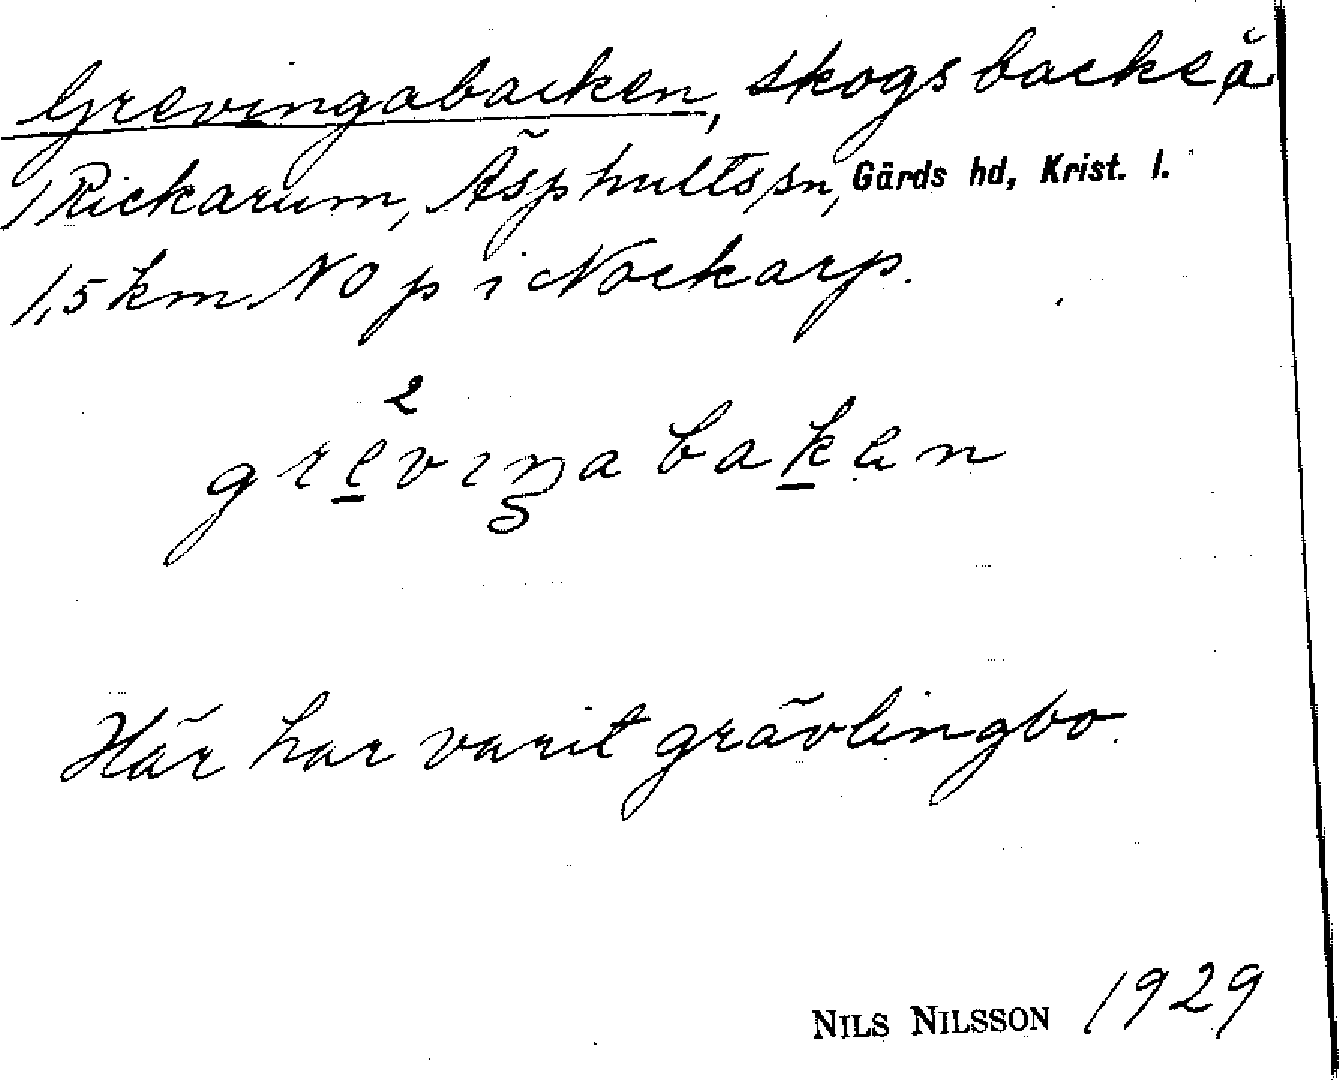 Grevingabacken, skogsbacke å
Rickarum, Äsphults sn, Gärds hd, Krist. l.
1,5 km NO p i Nockarp.
2
greviŋabakan
Här har varit grävlingbo.
NILS NILSSON 1929